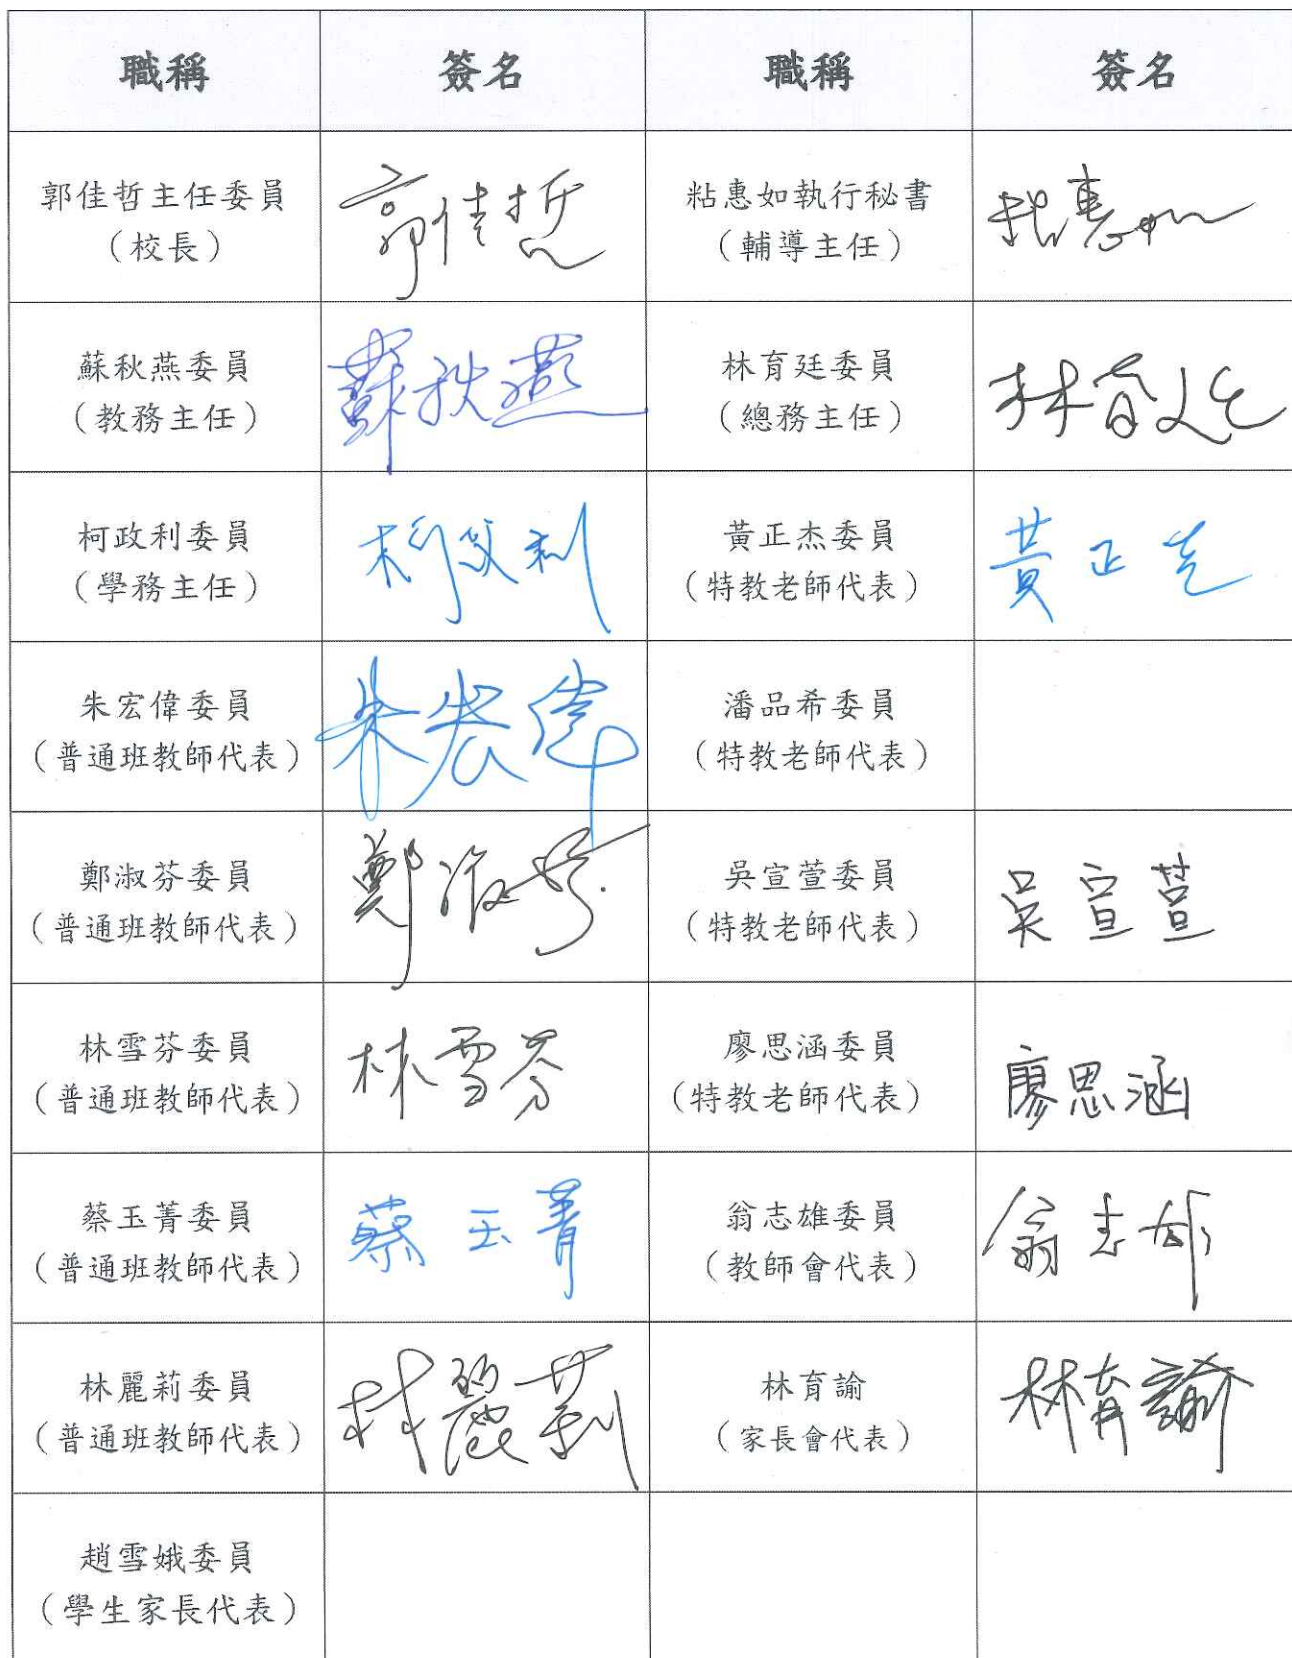 職稱 簽名 職稱 簽名
郭佳哲主任委員
（校長）
郭佳哲
粘惠如執行秘書
（輔導主任）
粘惠如
蘇秋燕委員
（教務主任）
蘇秋燕
林育廷委員
（總務主任）
林育廷
柯政利委員
（學務主任）
柯政利
黃正杰委員
（特教老師代表）
黃正杰
朱宏偉委員
（普通班教師代表）
朱宏偉
潘品希委員
（特教老師代表）
鄭淑芬委員
（普通班教師代表）
鄭淑芬
吳宣萱委員
（特教老師代表）
吳宣萱
林雪芬委員
（普通班教師代表）
林雪芬
廖思涵委員
（特教老師代表）
廖思涵
蔡玉菁委員
（普通班教師代表）
蔡玉菁
翁志雄委員
（教師會代表）
翁志雄
林麗莉委員
（普通班教師代表）
林麗莉
林育諭
（家長會代表）
林育諭
趙雪娥委員
（學生家長代表）